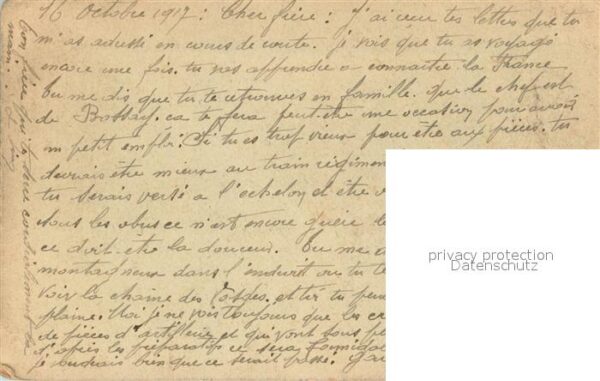 16 Octobre 1917: Cher frère: J'ai reçu tes lettres que tu
m'as adressé en cours de route. Je vois que tu as voyagé
encore une fois. tu vas apprendre a connaitre la France
tu me dis que tu te retrouves en famille. que le chef est
de Bossay. ca te fera peut-être une occasion pour avoir
un petit emploi. Si tu es trop vieux pour être aux pièces. tu
devrais être mieux au train régimen
tu serais versé a l'echelon et être
sous les obus ce n'est encore guère
ce doit être la douceur. Tu me
montagneux dans l'endroit ou tu te
voir la chaine des Vosges. et
plaine. Moi je ne vois toujours que les
de pièces d'artillerie et qui vont tous
d'après les préparatifs ce sera
je voudrais bien que ce serait passé.
Ton frère qui te serre cordialement la
main:
privacy protection
Datenschutz